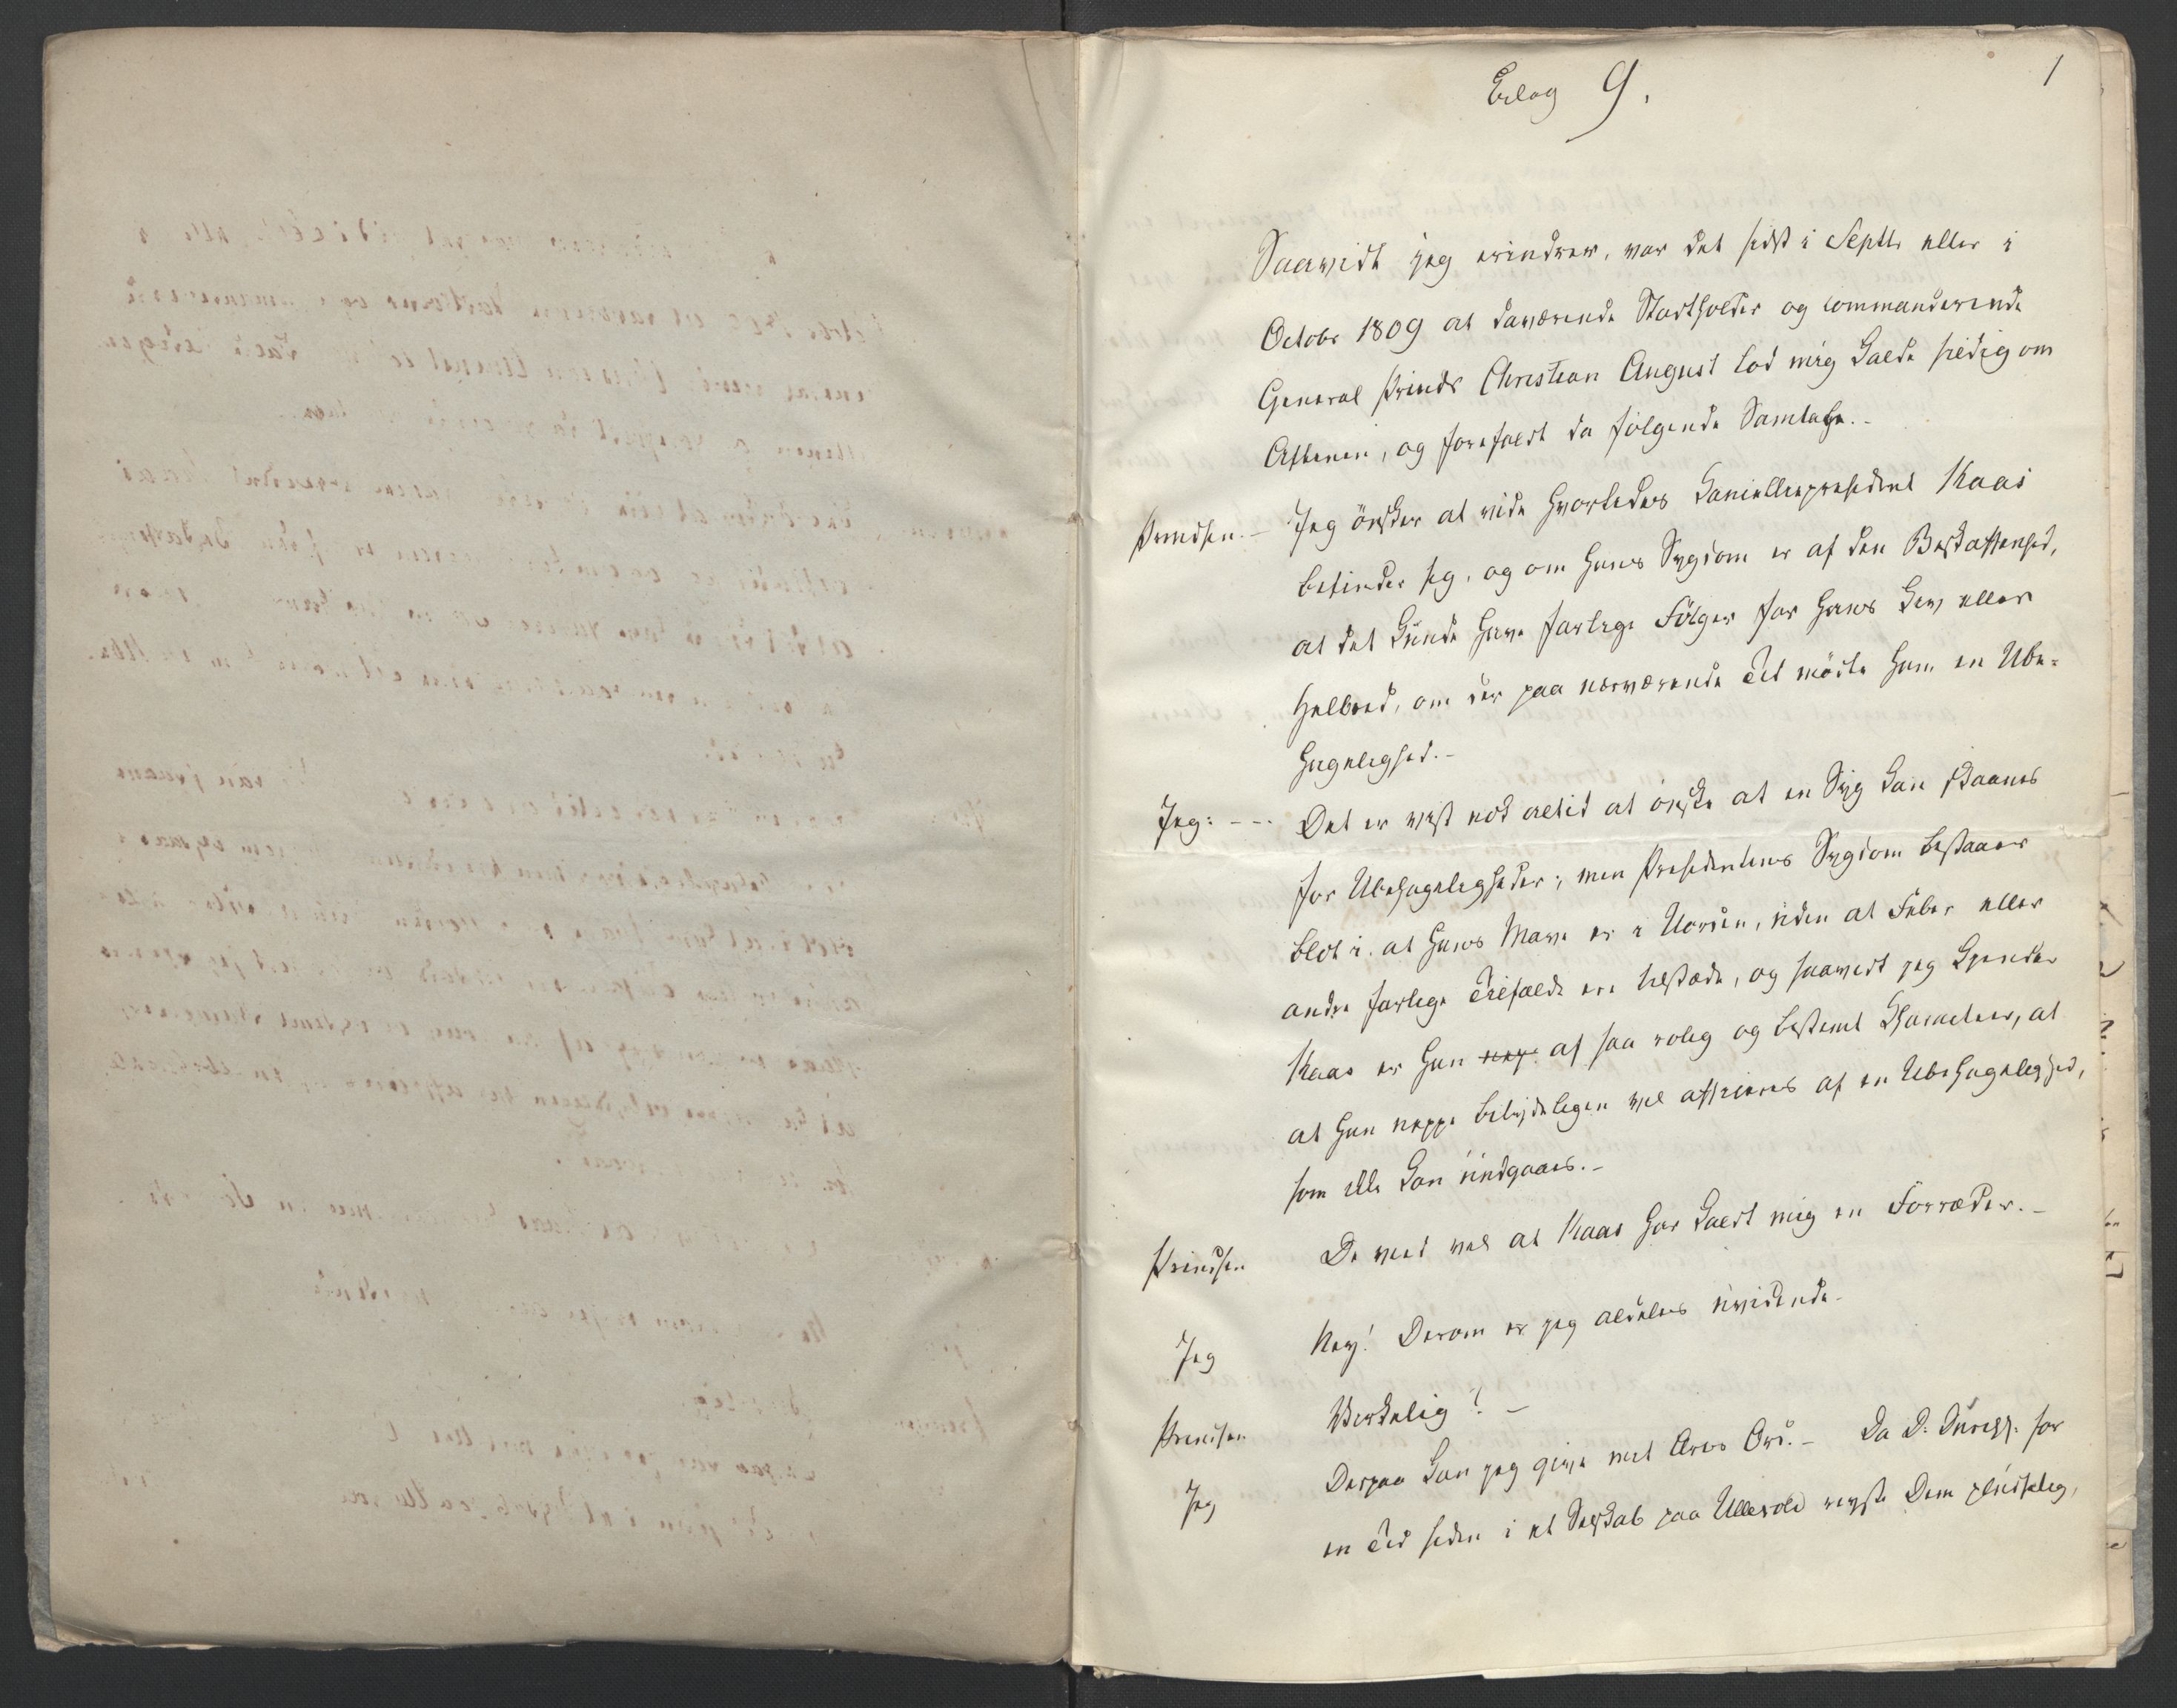 Bilag 9.
1
Saavidt jeg erindrer, var det sidst i Septbr eller i
Octobr 1809 at daværende Stadtholder og commanderende
General Prinds Christian August lod mig kalde sildig om
Aftenen, og forefaldt da følgende Samtale.-
Prindsen.- Jeg önsker at vide hvorledes Cancellipresident Kaas
befinder sig, og om hans Sygdom er af den Beskaffenhed,
at det kunde have farlige Fölger for hans Liv eller
Helbred, om der paa nærværende Tid mödte ham en Ube-
hagelighed.-
Jeg: --- Det er vist nok altid at önske at en Syg kan skaanes
for Ubehageligheder; men Presidentens Sygdom bestaaer
blot i at hans Mave er i Uorden, uden at Feber eller
andre farlige Tilfælde ere tilstæde, og saavidt jeg kjender
Kaas er han af saa rolig og bestemt Charakteer, at
at han neppe betydeligen vil afficeres af en Ubehagelighed,
som ikke kan undgaaes.-
Prindsen De veed vel at Kaas har kaldt mig en Forræder.-
Jeg Ney! Derom er jeg aldeles uvidende-
Prindsen Virkelig! -
Jeg Derpaa kan jeg give mit Æres Ord.- Da D. Durchl. for
en Tid siden i et Selskab paa Ullevold reyste Dem pludselig,